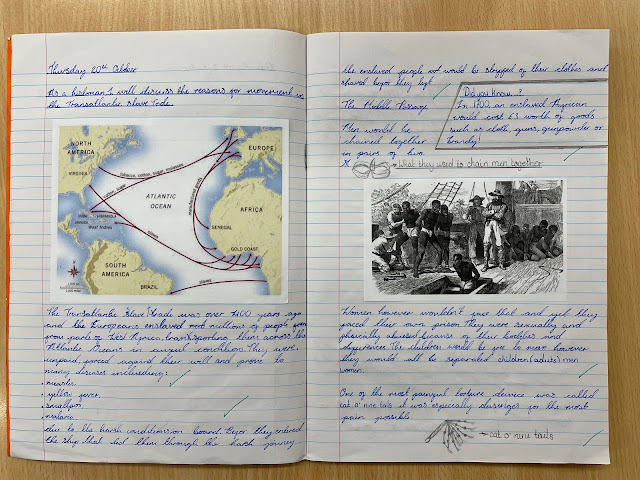 Thursday 20th October
As a historian, I will discuss the reasons for movement in
the Transatlantic Slave Trade.
NORTH
AMERICA
VIRGINIA
EUROPE
tobacco, cotton, sugar, molasses
manufactured goods
ATLANTIC
OCEAN
AFRICA
SENEGAL
GOLD COAST
slaves
West Indies
SOUTH
AMERICA
BRAZIL
slaves
The Transatlantic Slave Trade was over 400 years ago
and the Europeans enslaved millions of people from
parts of West Africa, transporting them across the
Atlantic Ocean in awful condition. They were
unpaid, forced against their will and prone to
many diseases including:
. measles
. yellow fever
. smallpox
. malaria
due to the harsh conditions on board. Before they entered
the ship that led them through the harsh journey
the enslaved people would be stripped of their clothes and
shaved before they left.
Did you know...?
In 1700, an enslaved African
would cost £3 worth of goods
such as cloth, guns, gunpowder or
brandy!
The Middle Passage
Men would be
chained together
in pairs of two.
X → What they used to chain men together
Women however wouldn't face that and yet they
faced their own prison. They were sexually and
physically abused because of their bodies and
The children would be free to move however
they would all be separated children (adults) men
women.
One of the most painful torture devices was called
cat o' nine tails it was especially for the most
pain possible
→ cat o' nine tails